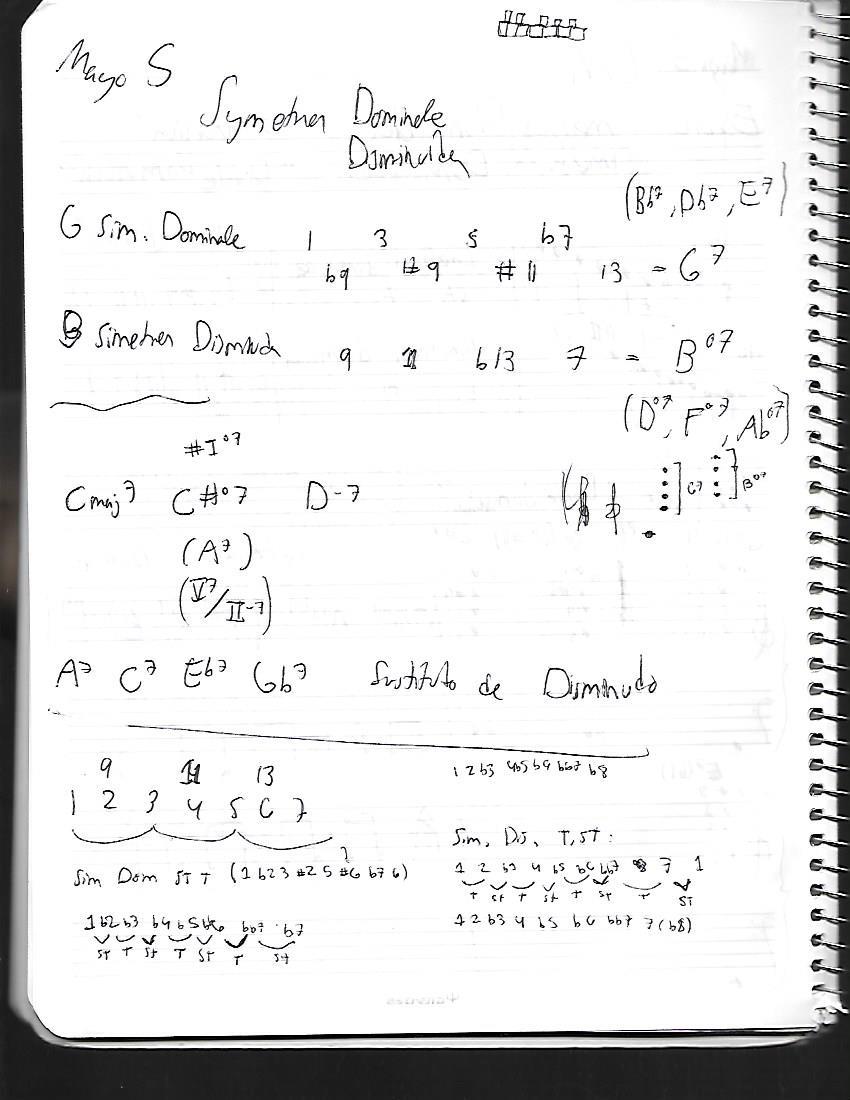 Mayo 5
Symetrica Dominate
Disminuida
(Bb7, Db7, E7)
G Sim. Dominate 1 3 5 b7
b9 #9 #11 13 = G7
B Simetrica Disminuida 9 11 b13 7 = B°7
(D°7, F°7, Ab°7)
#I°7
Cmaj7 C#°7 D-7
C7 B°7
(A7)
(V7/II-7)
A7 C7 Eb7 Gb7 Sustituto de Disminudo
9 11 13
1 2 3 4 5 6 7
1 2 b3 4 b5 b6 bb7 b8
Sim Dom ST T (1 b2 3 #2 5 #6 b7 6)
1 b2 b3 b4 b5 bb6 bb7 b7
ST T ST T ST T ST
Sim, Dis, T, ST:
1 2 b3 4 b5 b6 bb7 7 1
T ST T ST T ST T ST
1 2 b3 4 b5 b6 bb7 7 (b8)